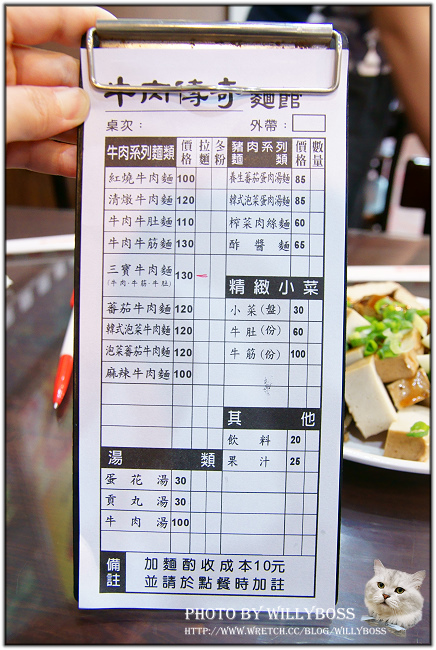 牛肉傳奇 麵館
桌次： 外帶：
牛肉系列麵類 價格 拉麵 冬粉
紅燒牛肉麵 100
清燉牛肉麵 120
牛肉牛肚麵 110
牛肉牛筋麵 130
三寶牛肉麵 130
(牛肉·牛筋·牛肚)
蕃茄牛肉麵 120
韓式泡菜牛肉麵 120
泡菜蕃茄牛肉麵 120
麻辣牛肉麵 100
湯類
蛋花湯 30
貢丸湯 30
牛肉湯 100
豬肉系列麵類 價格 數量
養生蕃茄蛋肉湯麵 85
韓式泡菜蛋肉湯麵 85
榨菜肉絲麵 60
酢醬麵 65
精緻小菜
小菜(盤) 30
牛肚(份) 60
牛筋(份) 100
其他
飲料 20
果汁 25
備註
加麵酌收成本10元
並請於點餐時加註
PHOTO BY WILLYBOSS
HTTP://WWW.WRETCH.CC/BLOG/WILLYBOSS